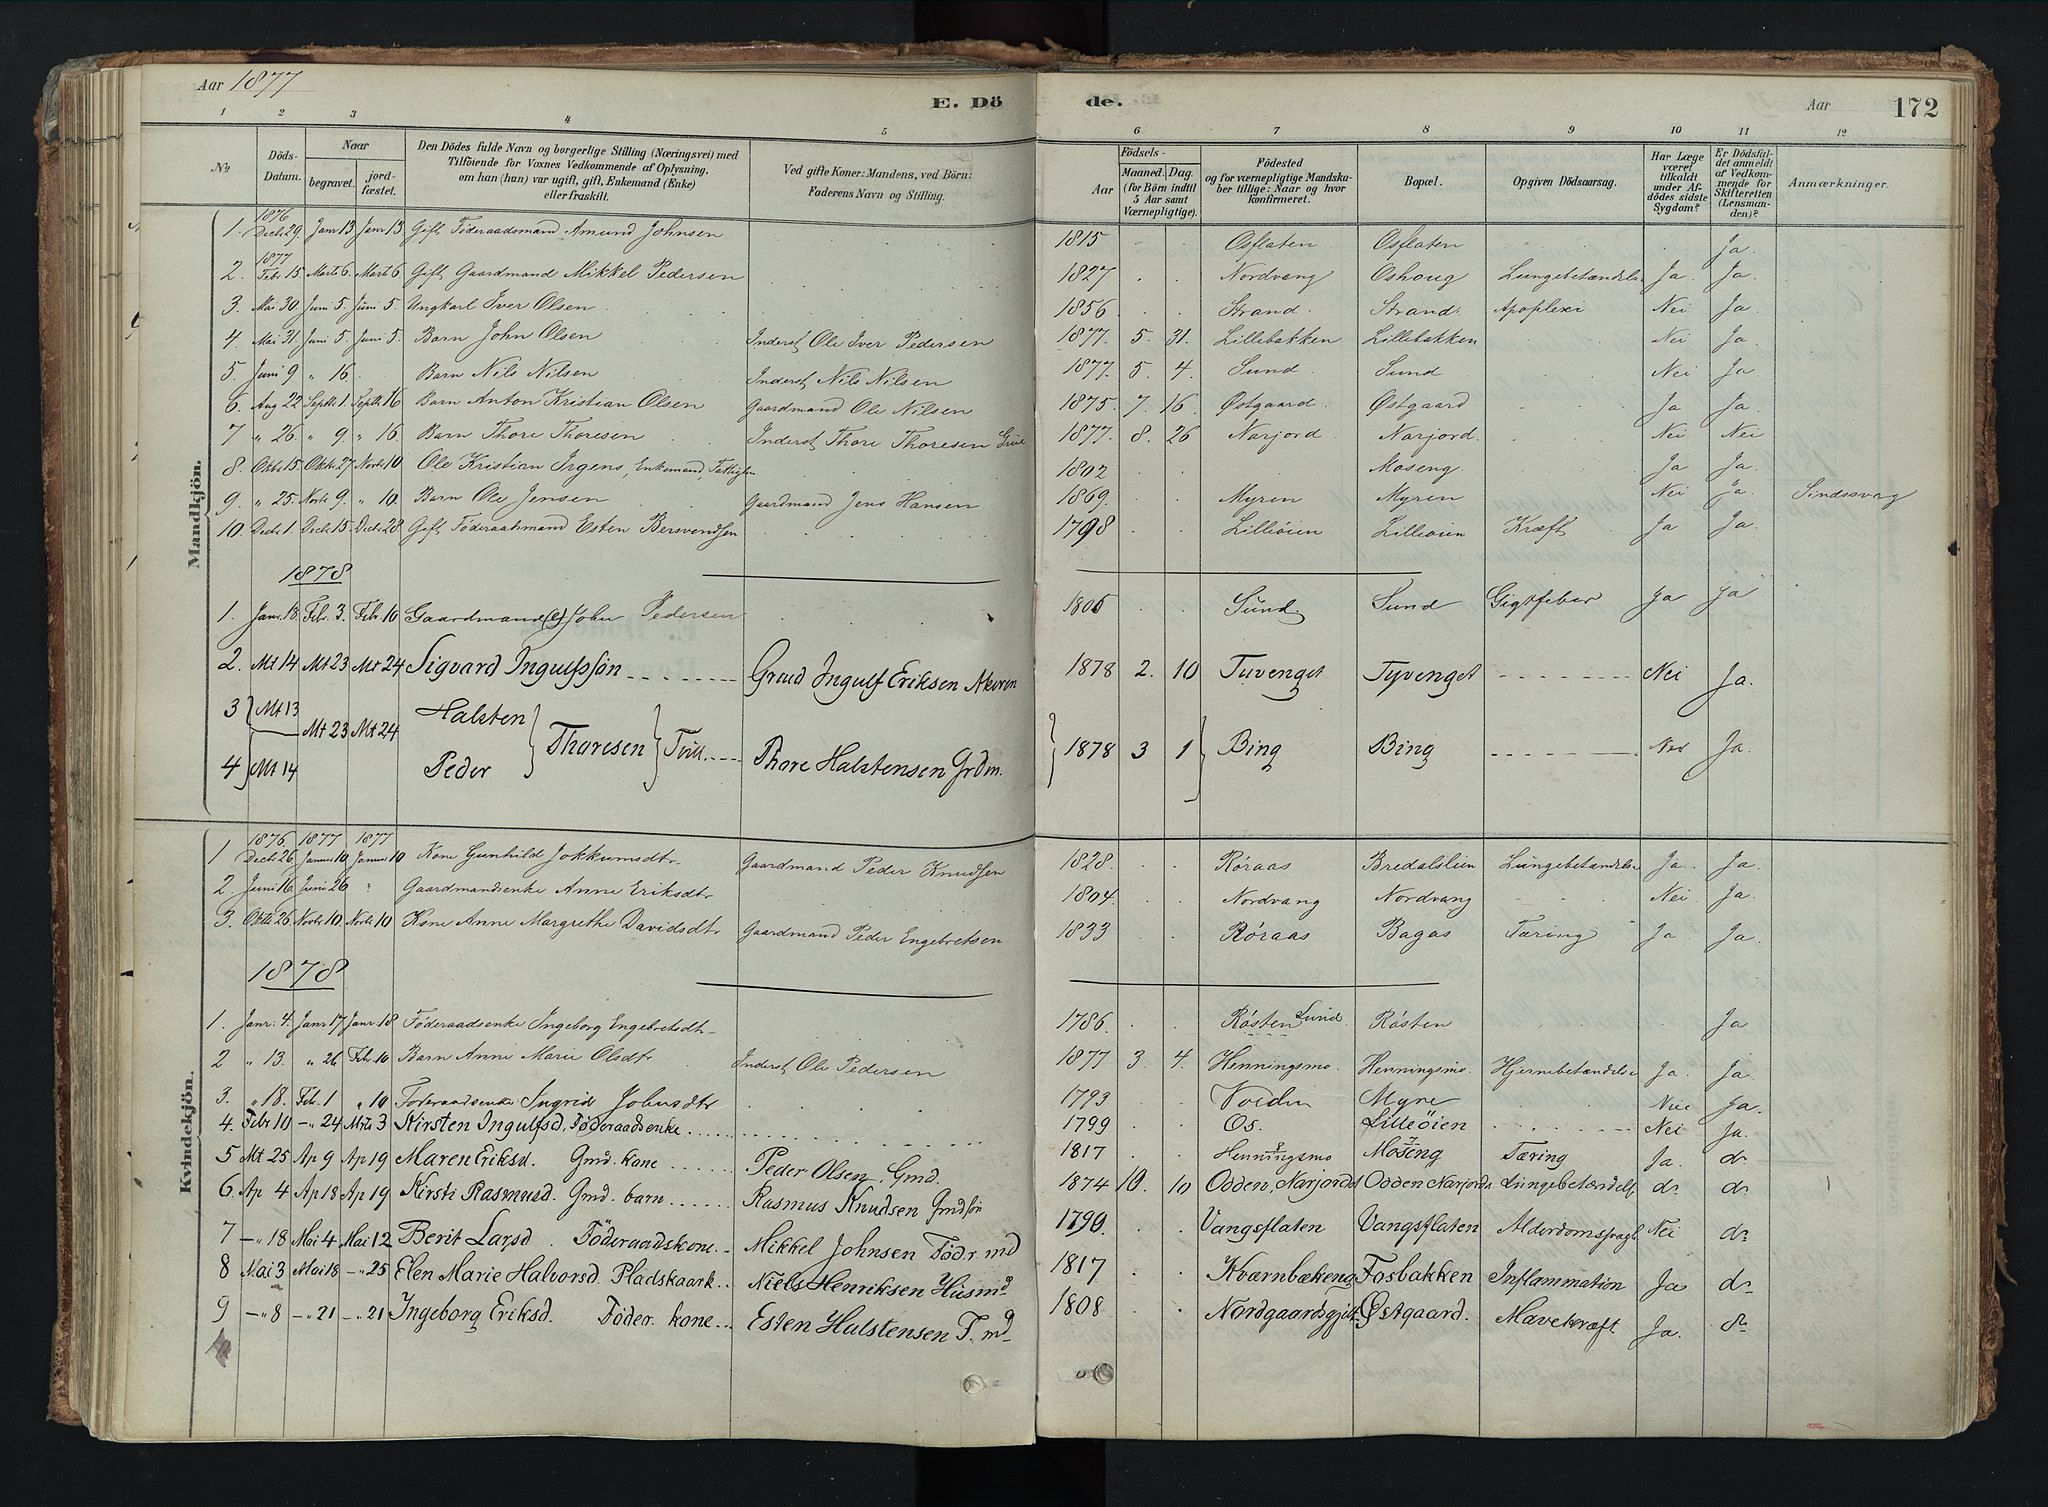 Aar 1877
E. Dö
de.
Aar
172
1 2 3 4 5 6 7 8 9 10 11 12
No.
Döds-Datum.
Naar
begravet.
jord-fæstet.
Den Dödes fulde Navn og borgerlige Stilling (Næringsvei) med
Tilföiende for Voxnes Vedkommende af Oplysning,
om han (hun) var ugift, gift, Enkemand (Enke)
eller fraskilt.
Ved gifte Koner: Mandens, ved Börn:
Faderens Navn og Stilling.
Födsels-
Aar
Maaned. Dag.
(for Börn indtil
5 Aar samt
Værnepligtige).
Födested
og for værnepligtige Mandska-
ber tillige: Naar og hvor
konfirmeret.
Bopæl.
Opgiven Dödsaarsag.
Har Læge
været
tilkaldt
under Af-
dödes sidste
Sygdom?
Er Dödsfal-
det anmeldt
af Vedkom-
mende for
Skifteretten
(Lensman-
den)?
Anmærkninger.
Mandkjön.
1876
1. Decb 29 Janr 13 Janr 13 Gift Föderaadsmand Amund Johnsen 1815 Osflaten Osflaten Ja.
1877
2. Febr. 15 Marts 6. Marts 6 Gift Gaardmand Mikkel Pedersen 1827 Nordvang Oshoug Lungebetændelse Ja. Ja.
3. Mai 30. Juni 5. Juni 5. Ungkarl Iver Olsen 1856 Strand Strand. Apoplexi Nei Ja.
4. Mai 31. Juni 5. Juni 5. Barn John Olsen Inderst Ole Iver Pedersen 1877. 5. 31. Lillebakken Lillebakken Nei Ja.
5. Juni 9 " 16 Barn Nils Nilsen Inderst Nils Nilsen 1877. 5. 4. Sund Sund Nei Ja.
6. Aug 22 Septb. 1. Septb. 16 Barn Anton Kristian Olsen Gaardmand Ole Nilsen 1875. 7. 16. Østgaard. Østgaard Ja Ja.
7 " 26. " 9. " 16. Barn Thore Thoresen Inderst Thore Thoresen 1877. 8. 26 Narjord. Narjord. Nei Nei
8. Oktb. 15. Oktb. 27 Novb. 10 Ole Kristian Irgens, Enkemand, 1802 Moseng. Ja Ja.
9. " 25. Novb. 9. " 10. Barn Ole Jensen Gaardmand Jens Hansen 1869. Myren Myren Nei Ja. Sindssvag
10. Decb. 1. Decb. 15. Decb. 28 Gift Föderaadsmand Esten Bersvendsen 1798 Lilleöien Lilleöien Kræft Ja Ja.
1878
1. Janr. 18. Febr. 3. Febr. 10 Gaardmand (e) John Pedersen 1805 Sund. Sund Gigtfeber Ja Ja
2. Mt 14 Mt 23 Mt 24 Sigvard Ingulfssön Grmd Ingulf Eriksen 1878 2. 10 Tuvenget Tyvenget Nei Ja.
3 Mt 13 Mt 23 Mt 24 Halsten
Thoresen Thore Halstensen Grdm. 1878 3 1 Bing Bing Nei Ja.
4 Mt 14 Peder
Kvindekjön.
1876 1877 1877
1 Decb. 26 Januar 10 Januar 10 Kone Gunhild Jokkumsdtr. Gaardmand Peder Knudsen 1828. Röraas Bredalslien Lungebetændelse Ja. Ja.
2. Juni 16 Juni 26 " Gaardmandsenke Anne Eriksdtr 1804. Nordvang Nordvang Nei Ja.
3. Oktb. 26 Novb. 10 Novb. 10 Kone Anne Margrethe Davidsdtr Gaardmand Peder Engebretsen 1833 Röraas Bagas Tæring Ja Ja.
1878
1. Janr. 4. Janr 17 Janr 18 Föderaadsenke Ingeborg Engebretsdtr 1786. Rösten Lund. Rösten Ja
2 " 13. " 26 Febr. 10 Barn Anne Marie Olsdtr Inderst Ole Pedersen 1877 3. 4. Henningsmo. Henningsmo. Hjernebetændelse Ja. Ja.
3. " 18. Febr. 1 " 10 Föderaadsenke Ingrid Johnsdtr 1793 Myre Nei Ja.
4. Febr 10 " 24 Mrts 3 Kirsten Ingulfsd. Föderaadsenke 1799 Os. Lilleöien Nei Ja.
5 Mt 25 Ap 9 Ap 19 Maren Eriksd. Gmd. kone Peder Olsen, Gmd. 1817 Henningsmo Moseng Tæring Ja. do
6 Ap 4 Ap 18 Ap 19 Kirsti Rasmusd. Gmd. barn Rasmus Knudsen Gmdsön 1874 10. 10 Odden, Narjordet Odden Narjorde Lungebetændelse do do
7 " 18 Mai 4 Mai 12 Berit Larsd. Föderaadskone Mikkel Johnsen Föd.r. md 1790. Vangsflaten Vangsflaten Nei do
8 Mai 3 Mai 18 " 25 Elen Marie Halvorsd. Niels Henriksen Husmd 1817 Kværnbækeng Fosbakken Inflammation Ja do
9 " 8 " 21 " 21 Ingeborg Eriksd. Föder. kone Esten Halstensen F. md 1808. Østgaard. Mavekræft Ja. do